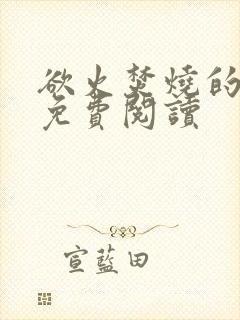 欲火焚燒的
免費閱讀
宣藍田